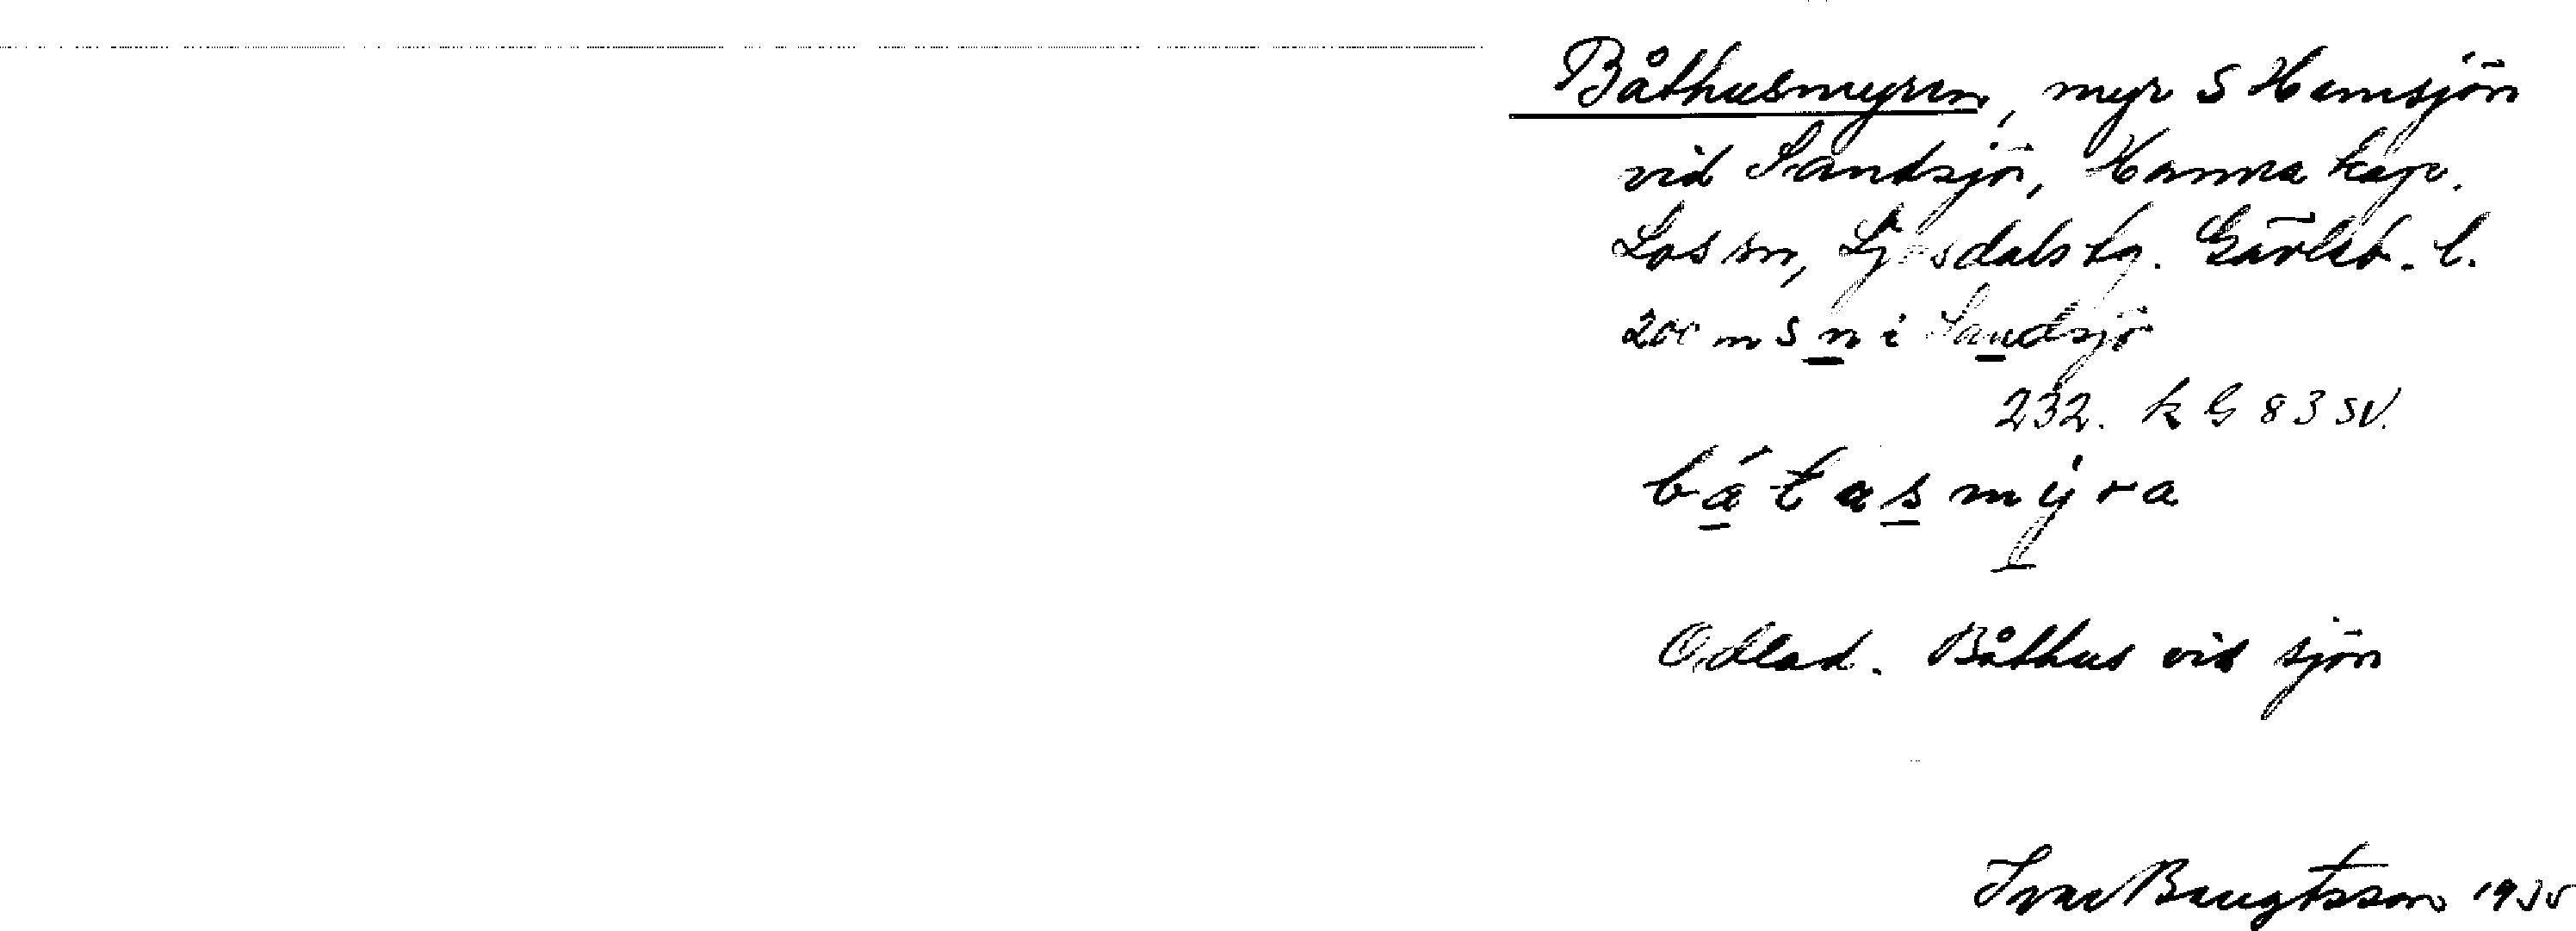 Båthusmyren, myr S Hamsjön
vid Sandsjö, Hamra kap.
Los sn, Ljusdals tg. Gävleb. l.
200 m S n i Sandsjö
232. k G 83 SV.
bátasmýra
Odlad. Båthus vid sjön
Ivar Bengtsson 1935